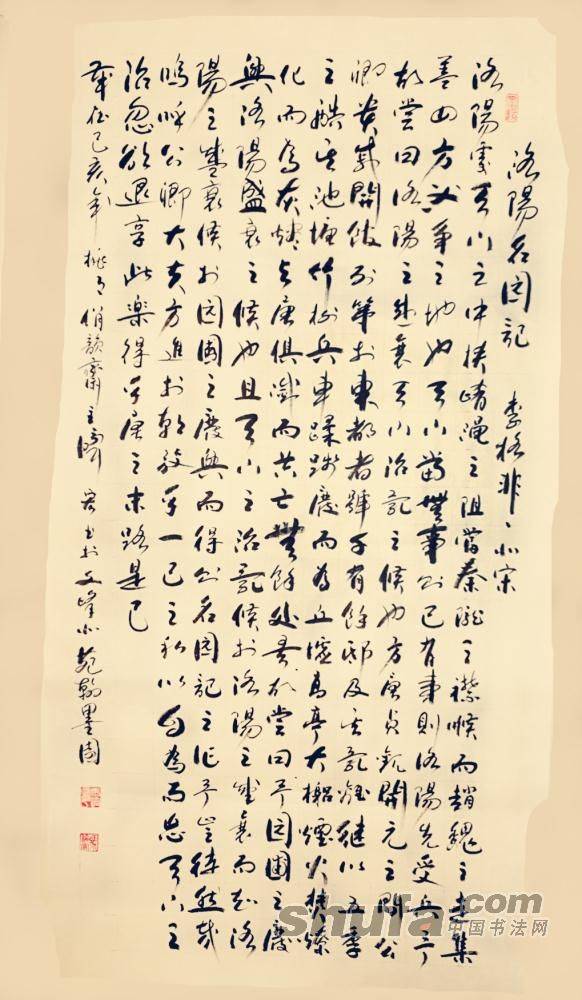 洛陽名园記 李格非 北宋
洛陽處天下之中挾崤澠之阻當秦隴之襟喉而趙魏之走集
蓋四方必爭之地也天下當無事則已有事則洛陽先受兵予
故嘗曰洛陽之盛衰天下治亂之候也方唐貞觀開元之間公
卿貴戚開館列第於東都者號千有餘邸及其亂離繼以五季
之酷其池塘竹樹兵車蹂踐廢而為丘墟高亭大榭煙火焚燎
化而為灰燼與唐俱滅而共亡無餘處矣故嘗曰予园圃之廢
興洛陽盛衰之候也且天下之治亂候於洛陽之盛衰而知洛
陽之盛衰候於园圃之廢興而得則名园記之作予豈徒然哉
嗚呼公卿大夫方進於朝放乎一己之私以自為而忘天下之
治忽欲退享此樂得乎唐之末路是已
歲在己亥年桃月俏韻齋主書於文峰北苑翰墨園
shufa.com
中国书法网